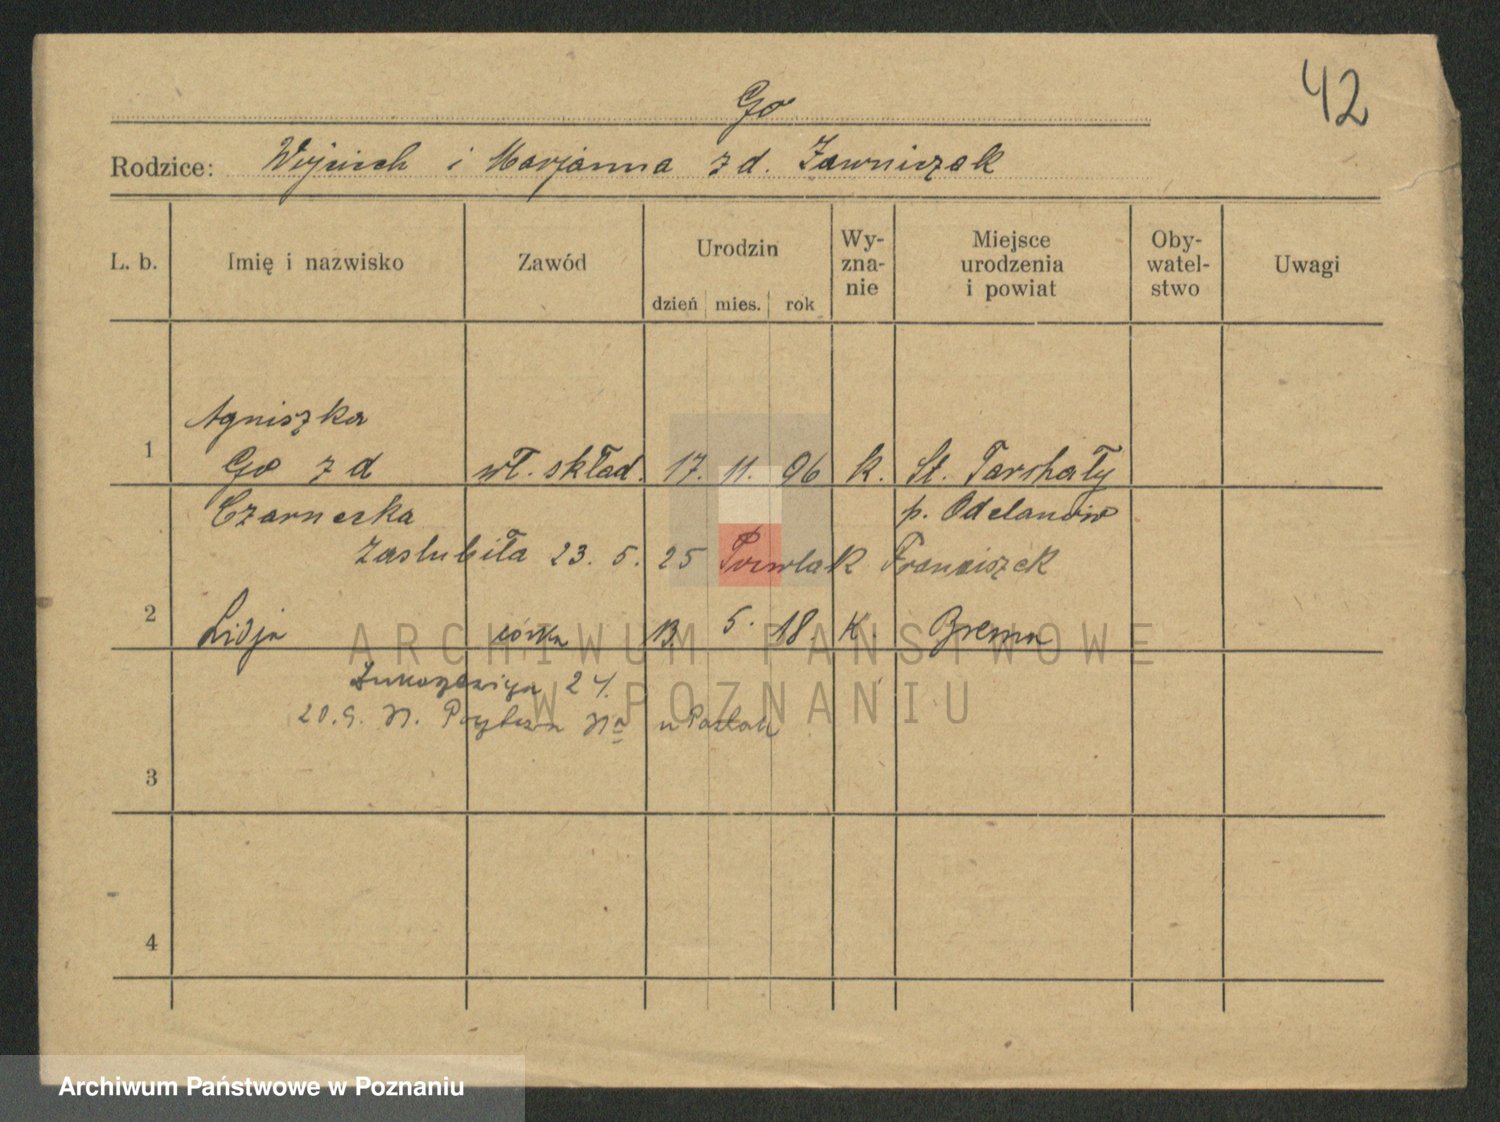 42
Go
Rodzice: Wojciech i Marjanna z d. Zawniczak
L. b. Imię i nazwisko Zawód Urodzin dzień mies. rok Wy-zna-nie Miejsce urodzenia i powiat Oby-watel-stwo Uwagi
Agniszka
1 Go z d wł. skład. 17. 11. 96 k. St. Tarchały
Czarnecka p. Odolanów
zaslubiła 23. 5. 25 Pawlak Franciszek
2 Lidja córka 13. 5. 18. K. Brema
24.
20.9.
3
4
ARCHIWUM PAŃSTWOWE
W POZNANIU
Archiwum Państwowe w Poznaniu